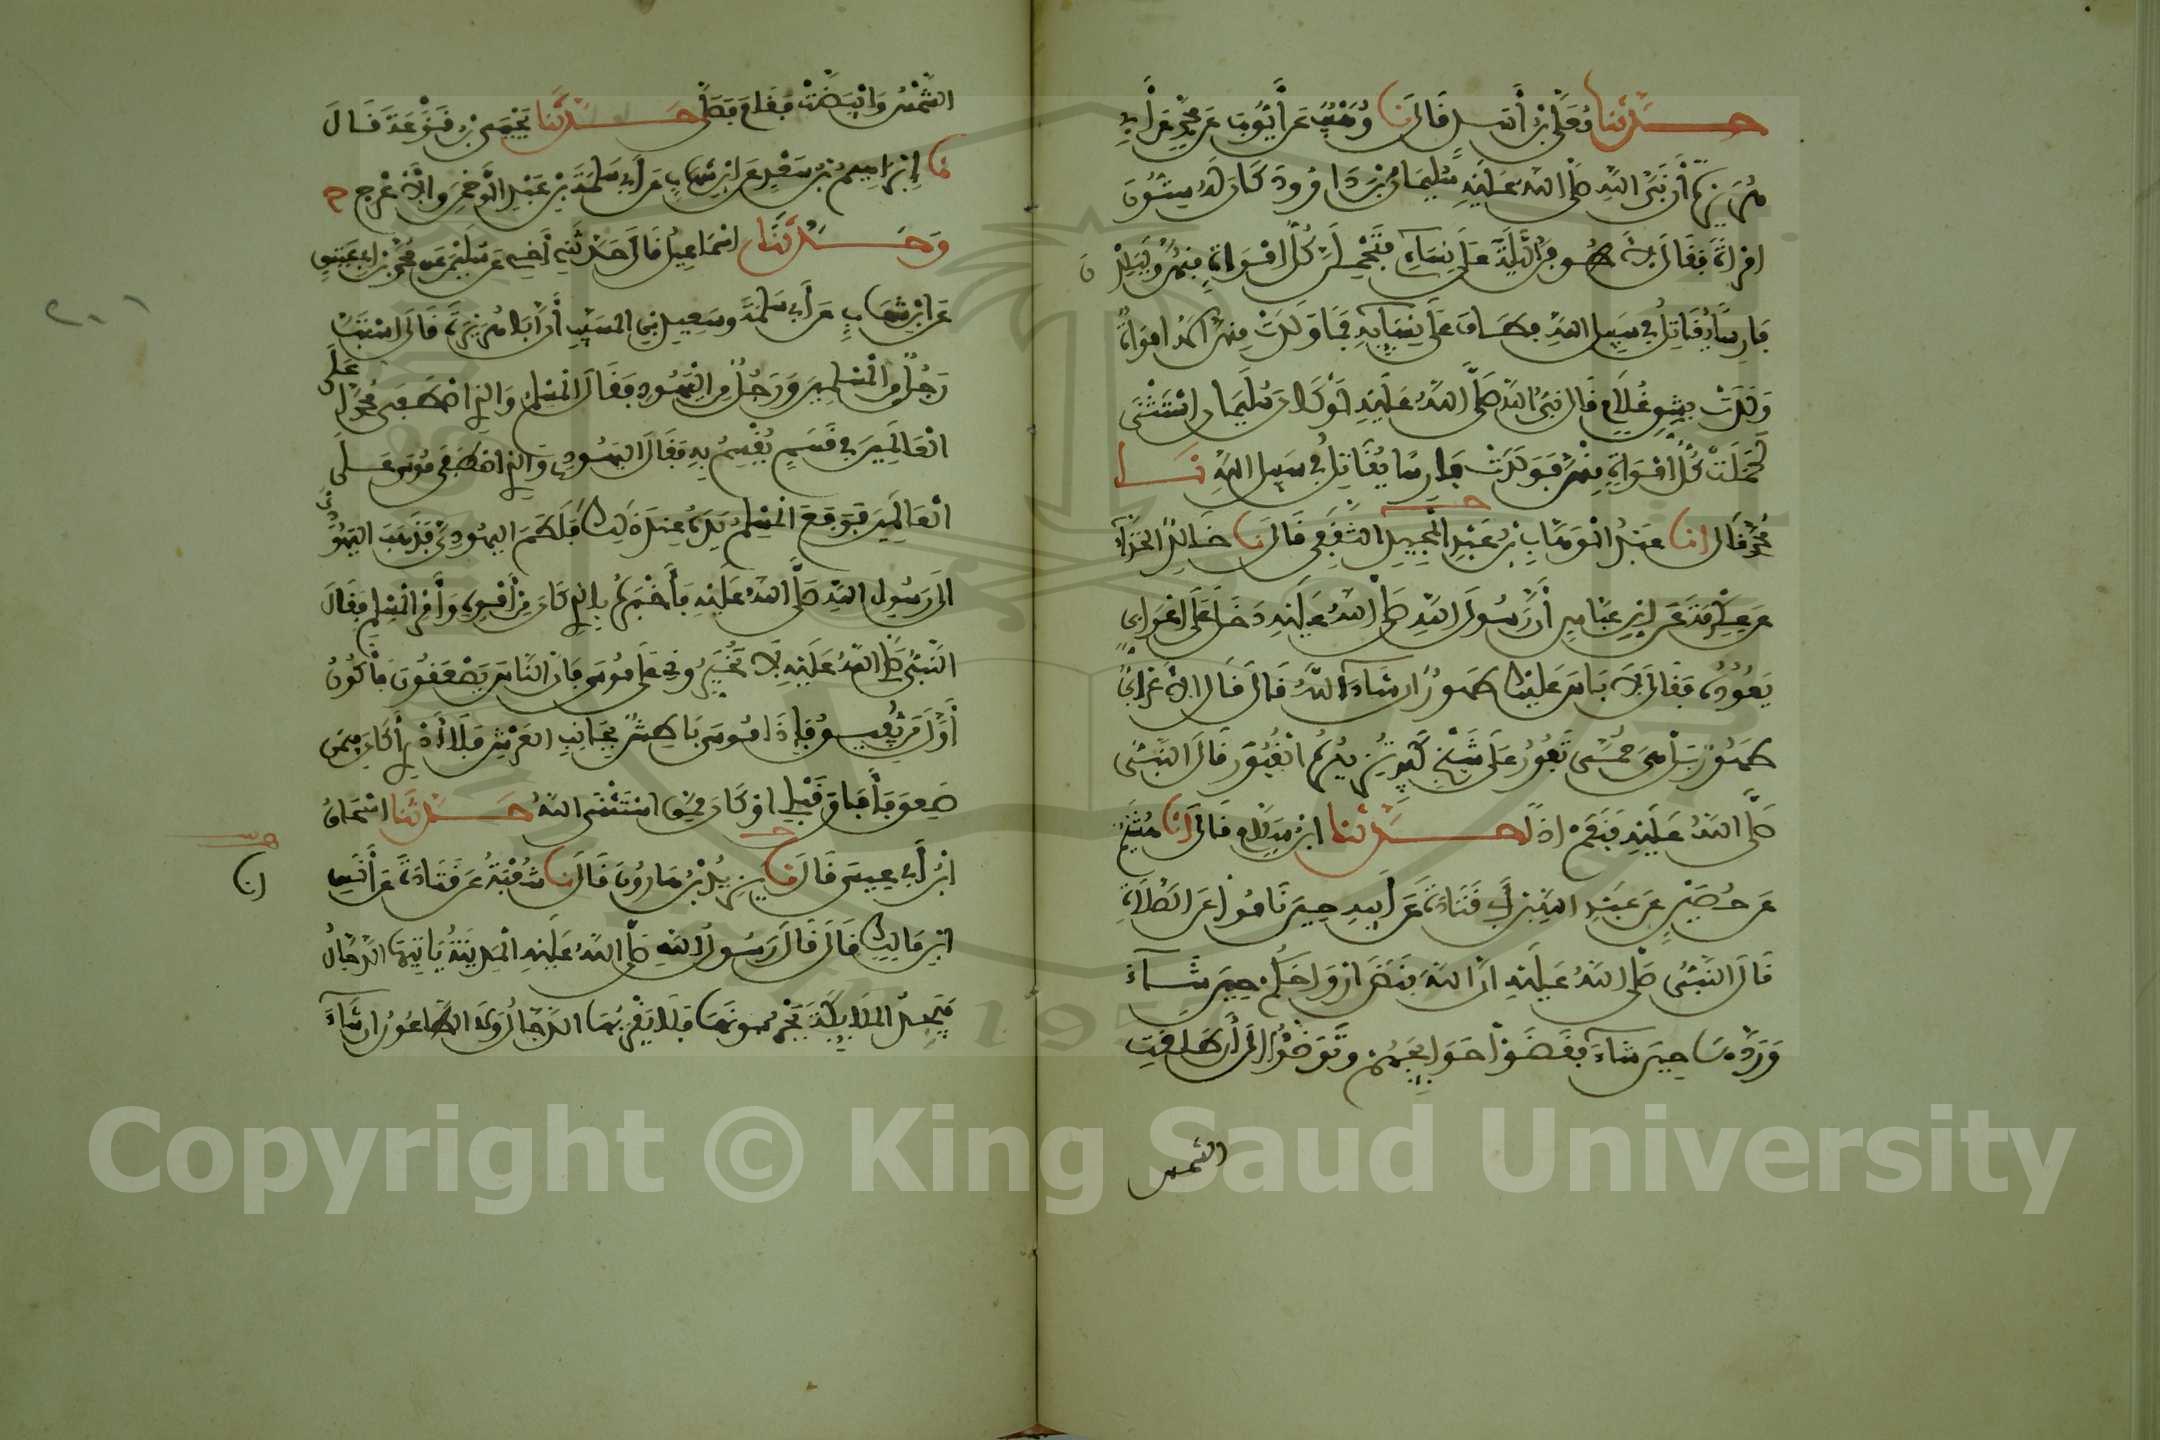 حدثنا معلى بن أسد قال نا وهيب عن أيوب عن محمد عن أبي
هريرة أن نبي الله صلى الله عليه سليمان بن داوود كان له ستون
امرأة فقال لأطوفن الليلة على نسائي فتحملن كل امرأة منهن ولتلدن
فارسا يقاتل في سبيل الله فطاف على نسائه فما ولدت منهن إلا امرأة
ولدت بشق غلام قال نبي الله صلى الله عليه لو كان سليمان استثنى
لحملت كل امرأة منهن فولدت فارسا يقاتل في سبيل الله نا
محمد قال انا عبد الوهاب بن عبد المجيد الثقفي قال نا خالد الحذاء
عن عكرمة عن ابن عباس أن رسول الله صلى الله عليه دخل على أعرابي
يعوده فقال لا باس عليك طهور إن شاء الله قال قال الأعرابي
طهور بل هي حمى تفور على شيخ كبير تزيره القبور قال النبي
صلى الله عليه فنعم إذا حدثنا ابن سلام قال انا هشيم
عن حصين عن عبد الله بن أبي قتادة عن أبيه حين ناموا عن الصلاة
قال النبي صلى الله عليه إن الله قبض أرواحكم حين شاء
وردها حين شاء فقضوا حوائجهم وتوضئوا إلى أن طلعت
الشمس
الشمس وابيضت فقام فصلى حدثنا يحيى بن قزعة قال
نا إبراهيم بن سعد عن ابن شهاب عن أبي سلمة بن عبد الرحمن والأعرج ح
وحدثنا اسماعيل قال حدثني أخي عن سليمان عن محمد بن أبي عتيق
عن ابن شهاب عن أبي سلمة وسعيد بن المسيب أن أبا هريرة قال استب
رجل من المسلمين ورجل من اليهود فقال المسلم والذي اصطفى محمدا على
العالمين في قسم يقسم به فقال اليهودي والذي اصطفى موسى على
العالمين فرفع المسلم يده عند ذلك فلطم اليهودي فذهب اليهودي
إلى رسول الله صلى الله عليه فأخبره بالذي كان من أمره وأمر المسلم فقال
النبي صلى الله عليه لا تخيروني على موسى فإن الناس يصعقون فأكون
أول من يفيق فإذا موسى باطش بجانب العرش فلا أدري أكان فيمن
صعق فأفاق قبلي أو كان ممن استثنى الله حدثنا اسحاق
ابن أبي عيسى قال نا يزيد بن هارون قال نا شعبة عن قتادة عن أنس
ان
ابن مالك قال قال رسول الله صلى الله عليه المدينة ياتيها الدجال
فيجد الملائكة يحرسونها فلا يقربها الدجال ولا الطاعون إن شاء
Copyright © King Saud University
1957